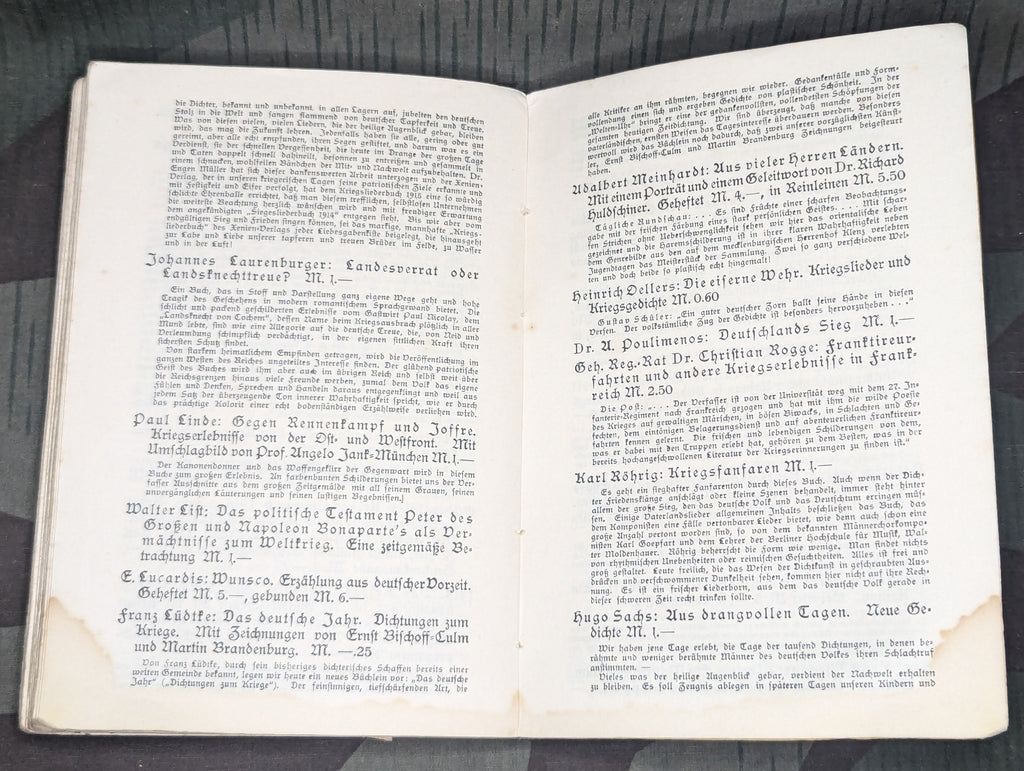 die Dichter, bekannt und unbekannt, in allen Lagern auf, jubelten den deutschen
Stolz in die Welt und sangen flammend von deutscher Tapferkeit und Treue.
Was von diesen vielen, vielen Liedern, die der heilige Augenblick gebar, bleiben
wird, das mag die Zukunft lehren. Jedenfalls haben sie alle, gering oder gut
gereimt, aber alle echt empfunden, ihren Segen gestiftet, und darum war es ein
Verdienst, sie der schnellen Vergessenheit, die heute im Drange der großen Tage
und Taten doppelt schnell dahineilt, besonnen zu entreißen und gesammelt in
einem schmucken, wohlfeilen Bändchen der Mit- und Nachwelt aufzubehalten. Dr.
Eugen Müller hat sich dieser dankenswerten Arbeit unterzogen und der Xenien-
Verlag, der in unseren kriegerischen Tagen seine patriotischen Ziele erkannte und
mit Festigkeit und Eifer verfolgt, hat dem Kriegsliederbuch 1915 eine so würdig
schlichte Ehrenhalle errichtet, daß man diesem trefflichen, selbstlosen Unternehmen
die weiteste Beachtung herzlich wünschen wird und mit freudiger Erwartung
dem angekündigten „Siegesliederbuch 1914“ entgegen sieht. Bis wir aber vom
endgültigen Sieg und Frieden singen können, sei das markige, mannhafte „Kriegs-
liederbuch“ des Xenien-Verlags jeder Liebesgabenkiste beigelegt, die hinausgeht
zur Labe und Liebe unserer tapferen und treuen Brüder im Felde, zu Wasser
und in der Luft!
Johannes Laurenburger: Landesverrat oder
Landsknechttreue? M. 1.—
Ein Buch, das in Stoff und Darstellung ganz eigene Wege geht und hohe
Tragik des Geschehens in modern romantischem Sprachgewand bietet. Die
schlicht und packend geschilderten Erlebnisse vom Gastwirt Paul Nicolay, dem
„Landsknecht von Cochem“, dessen Name beim Kriegsausbruch plötzlich in aller
Mund lebte, sind wie eine Allegorie auf die deutsche Treue, die, von Neid und
Verleumdung schimpflich verdächtigt, in der eigenen sittlichen Kraft ihren
sichersten Schutz findet.
Von starkem heimatlichem Empfinden getragen, wird die Veröffentlichung im
ganzen Westen des Reiches ungeteiltes Interesse finden. Der glühend patriotische
Geist des Buches wird ihm aber auch im übrigen Reich und selbst weit über
die Reichsgrenzen hinaus viele Freunde werben, zumal dem Volk das eigene
Fühlen und Denken, Sprechen und Handeln daraus entgegenklingt und weil aus
jedem Satz der überzeugende Ton innerer Wahrhaftigkeit spricht, wie er durch
das prächtige Kolorit einer echt bodenständigen Erzählweise verliehen wird.
Paul Linde: Gegen Rennenkampf und Joffre.
Kriegserlebnisse von der Ost- und Westfront. Mit
Umschlagbild von Prof. Angelo Jank-München M. 1.—
Der Kanonendonner und das Waffengeklirr der Gegenwart wird in diesem
Buche zum großen Erlebnis. An farbenbunten Schilderungen bietet uns der Ver-
fasser Ausschnitte aus dem großen Zeitgemälde mit all seinem Grauen, seinen
unvergänglichen Läuterungen und seinen lustigen Begebnissen.]
Walter List: Das politische Testament Peter des
Großen und Napoleon Bonaparte's als Ver-
mächtnisse zum Weltkrieg. Eine zeitgemäße Be-
trachtung M. 1.—
E. Lucardis: Wunsco. Erzählung aus deutscher Vorzeit.
Geheftet M. 5.—, gebunden M. 6.—
Franz Lüdtke: Das deutsche Jahr. Dichtungen zum
Kriege. Mit Zeichnungen von Ernst Bischoff-Culm
und Martin Brandenburg. M. —.25
Von Franz Lüdtke, durch sein bisheriges dichterisches Schaffen bereits einer
weiten Gemeinde bekannt, legen wir heute ein neues Büchlein vor: „Das deutsche
Jahr“ („Dichtungen zum Kriege“). Der feinsinnigen, tiefschürfenden Art, die
alle Kritiker an ihm rühmten, begegnen wir wieder. Gedankenfülle und Form-
vollendung einen sich und ergeben Gedichte von plastischer Schönheit. In der
„Welten-Uhr“ bringt er eine der gedankenvollsten, vollendetsten Schöpfungen der
gesamten heutigen Zeitdichtung. Wir sind überzeugt, daß manche von diesen
vaterländischen, ernsten Weisen das Tagesinteresse überdauern werden. Besonders
wertvoll wird das Büchlein noch dadurch, daß zwei unserer vorzüglichsten Künst-
ler, Ernst Bischoff-Culm und Martin Brandenburg Zeichnungen beigesteuert
haben.
Adalbert Meinhardt: Aus vieler Herren Ländern.
Mit einem Porträt und einem Geleitwort von Dr. Richard
Huldschiner. Geheftet M. 4.—, in Reinleinen M. 5.50
Tägliche Rundschau: . . . Es sind Früchte einer scharfen Beobachtungs-
gabe mit der frischen Färbung eines stark persönlichen Geistes. . . . Mit scharf
fen Strichen ohne Ueberschwenglichkeit sehen wir hier das orientalische Leben
gezeichnet und die Haremsschilderung ist in ihrer klaren Wahrhaftigkeit neben
dem Genrebilde aus den auf dem mecklenburgischen Herrenhof Klenz verlebten
Jugendtagen das Meisterstück der Sammlung. Zwei so ganz verschiedene Wel-
ten und doch beide so plastisch echt hingemalt!
Heinrich Oellers: Die eiserne Wehr. Kriegslieder und
Kriegsgedichte M. 0.60
Gustav Schüler: „Ein guter deutscher Zorn ballt seine Hände in diesen
Versen. Der volkstümliche Zug der Gedichte ist besonders hervorzuheben . . .“
Dr. A. Poulimenos: Deutschlands Sieg M. 1.—
Geh. Reg.-Rat Dr. Christian Rogge: Franktireur-
fahrten und andere Kriegserlebnisse in Frank-
reich M. 2.50
Die Post: „. . . Der Verfasser ist von der Universität weg mit dem 27. In-
fanterie-Regiment nach Frankreich gezogen und hat mit ihm die wilde Poesie
des Krieges auf gewaltigen Märschen, in bösen Biwacks, in Schlachten und Ge-
fechten, dem eintönigen Belagerungsdienst und auf abenteuerlichen Franktireur-
fahrten kennen gelernt. Die frischen und lebendigen Schilderungen von dem,
was er dabei mit den Truppen erlebt hat, gehören zu dem Besten, was in der
bereits hochangeschwollenen Literatur der Kriegserinnerungen zu finden ist.“
Karl Röhrig: Kriegsfanfaren M. 1.—
Es geht ein sieghafter Fanfarenton durch dieses Buch. Auch wenn der Dich-
ter Friedensklänge anschlägt oder kleine Szenen behandelt, immer steht hinter
allem der große Sieg, den das deutsche Volk und das Deutschtum erringen müs-
sen. Einige Vaterlandslieder allgemeinen Inhalts beschließen das Buch, das
dem Komponisten eine Fülle vertonbarer Lieder bietet, wie denn auch schon eine
große Anzahl vertont worden sind, so von dem bekannten Männerchorkompo-
nisten Karl Goepfart und dem Lehrer der Berliner Hochschule für Musik, Wal-
ter Moldenhauer. Röhrig beherrscht die Form wie wenige. Man findet nichts
von rhythmischen Unebenheiten oder reimischen Gesuchtheiten. Alles ist frei und
groß gestaltet. Leute freilich, die das Wesen der Dichtkunst in geschraubten Aus-
drücken und verschwommener Dunkelheit sehen, kommen hier nicht auf ihre Rech-
nung. Es ist ein frischer Liederborn, aus dem das deutsche Volk gerade in
dieser schweren Zeit recht trinken sollte.
Hugo Sachs: Aus drangvollen Tagen. Neue Ge-
dichte M. 1.—
Wir haben jene Tage erlebt, die Tage der tausend Dichtungen, in denen be-
rühmte und weniger berühmte Männer des deutschen Volkes ihren Schlachtruf
anstimmten. —
Vieles was der heilige Augenblick gebar, verdient der Nachwelt erhalten
zu bleiben. Es soll Zeugnis ablegen in späteren Tagen unseren Kindern und